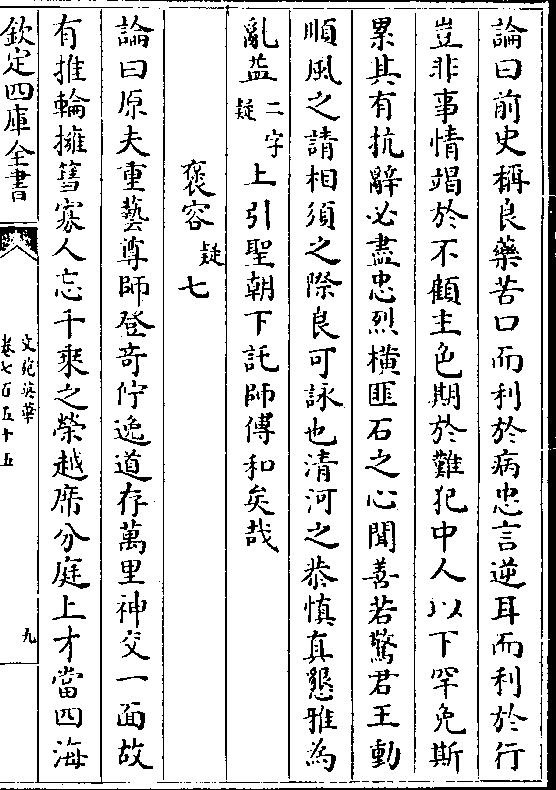 論曰前史稱良藥苦口而利於病忠言逆耳而利於行
豈非事情竭於不顧主色期於難犯中人以下罕免斯
累其有抗辭必盡忠烈橫匪石之心聞善若驚君王動
順風之請相須之際良可詠也清河之恭慎真懇雅為
亂益二字疑上引聖朝下託師傅和矣哉
褒容疑七
論曰原夫重藝尊師登奇佇逸道存萬里神交一面故
有推輪擁篲寡人忘千乘之榮越席分庭上才當四海
欽定四庫全書
文苑英華
卷七百五十五
九